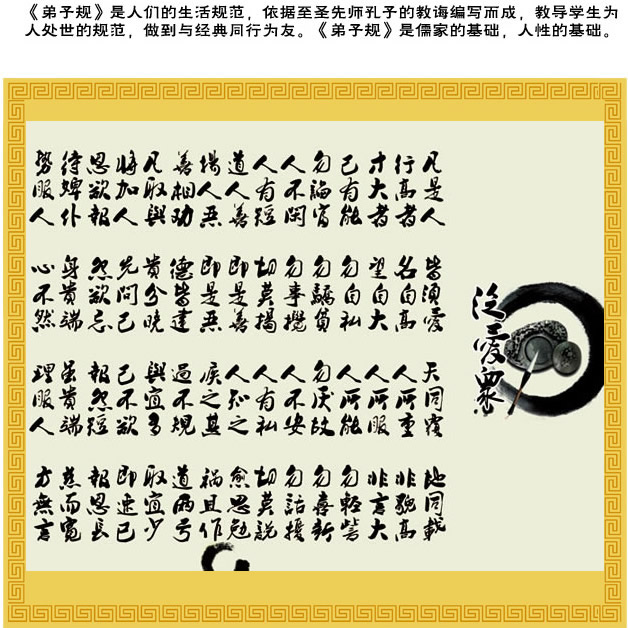 《弟予规》是人们的生活规范，依据至圣先师孔予的教诲编写而成，教导学生为
人处世的规范，做到与经典同行为友。《弟予规》是儒家的基础，人性的基础。
泛愛眾
凡是人 皆須愛 天同覆 地同載
行高者 名自高 人所重 非貌高
才大者 望自大 人所服 非言大
己有能 勿自私 人所能 勿輕訾
勿諂富 勿驕貧 勿厌故 勿喜新
人不閑 勿事攪 人不安 勿話擾
人有短 切莫揭 人有私 切莫說
道人善 即是善 人知之 愈思勉
揚人恶 即是恶 疾之甚 祸且作
善相劝 德皆建 過不規 道兩亏
凡取與 貴分曉 與宜多 取宜少
將加人 先問己 己不欲 即速已
恩欲報 怨欲忘 報怨短 報恩長
待婢仆 身貴端 虽貴端 慈而寬
勢服人 心不然 理服人 方無言